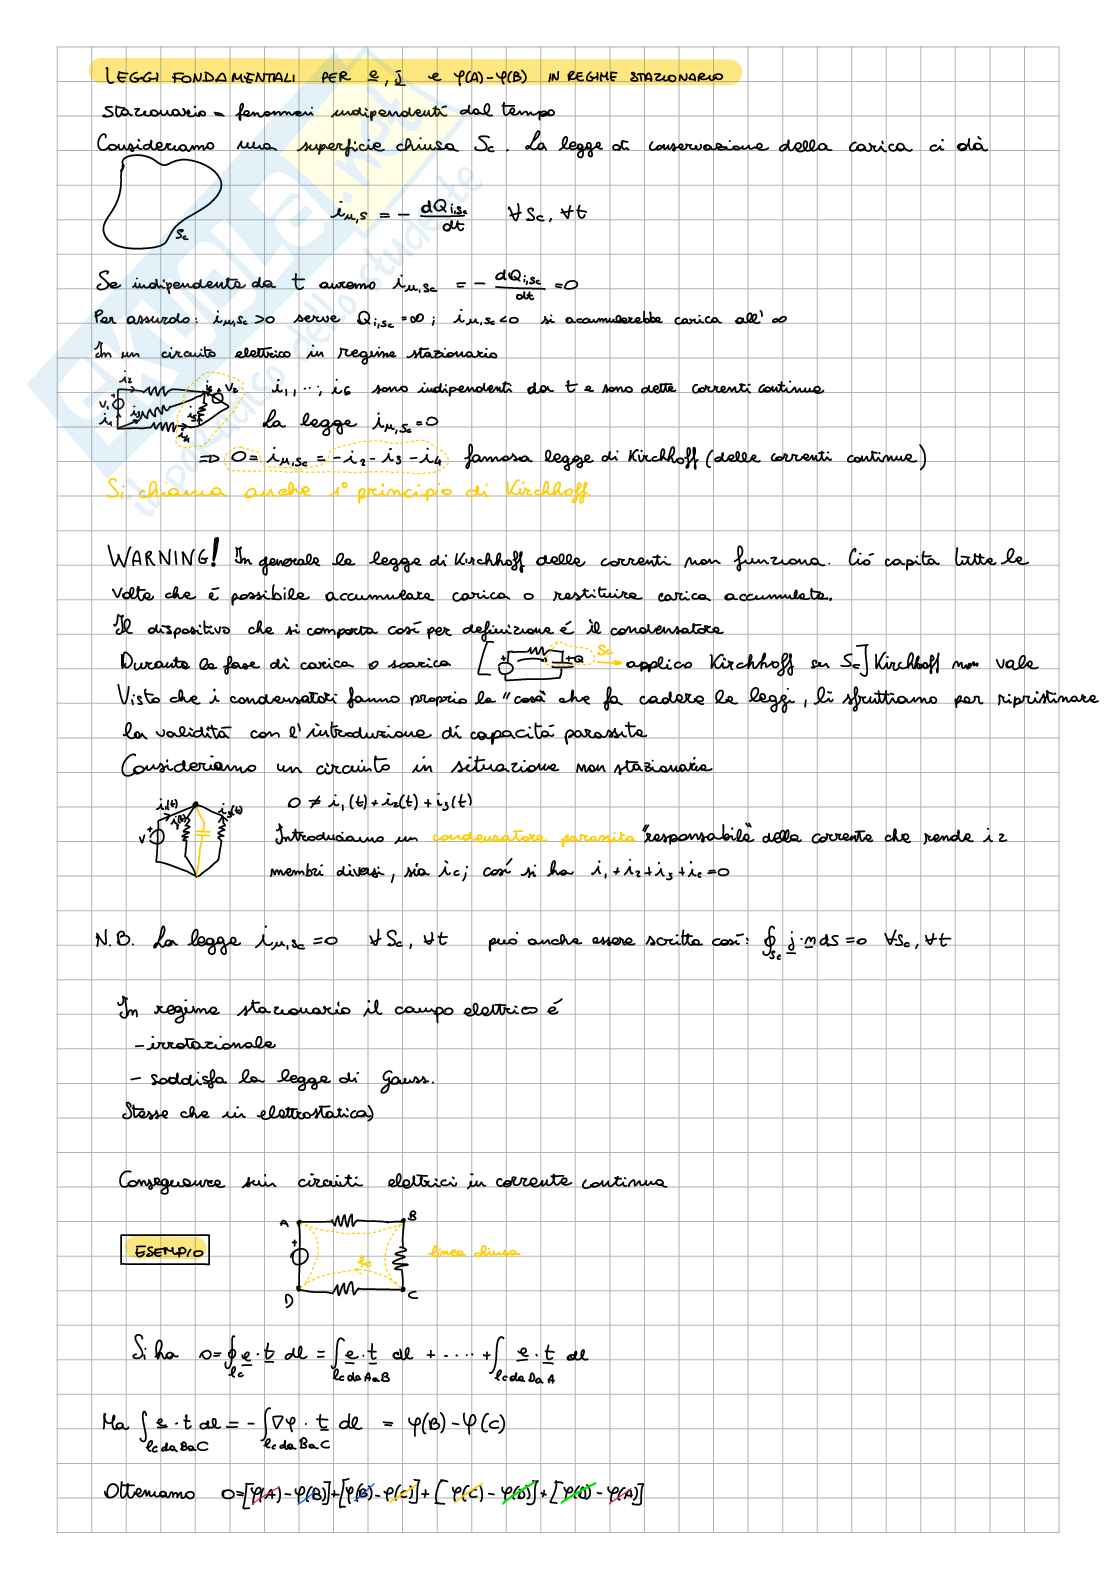 LEGGI FONDAMENTALI PER e, j e φ(A)-φ(B) IN REGIME STAZIONARIO
Stazionario = fenomeni indipendenti dal tempo
Consideriamo una superficie chiusa Sc. La legge di conservazione della carica ci dà
Sc
iu,s = - dQi,sc/dt ∀Sc, ∀t
Se indipendente da t avremo iu,sc = - dQi,sc/dt = 0
Per assurdo: iu,sc>0 serve Qi,sc=∞; iu,sc<0 si accumulerebbe carica all' ∞
In un circuito elettrico in regime stazionario
i1, ...; i6 sono indipendenti da t e sono dette correnti continue
La legge iu,sc=0
⇒ 0= iu,sc = -i2 - i3 - i4 famosa legge di Kirchhoff (delle correnti continue)
Si chiama anche 1° principio di Kirchhoff
WARNING! In generale la legge di Kirchhoff delle correnti non funziona. Ció capita tutte le
volte che é possibile accumulare carica o restituire carica accumulata.
Il dispositivo che si comporta cosí per definizione é il condensatore
Durante la fase di carica o scarica [ + +Q Sc → applico Kirchhoff su Sc] Kirchhoff non vale
Visto che i condensatori fanno proprio la "cosa" che fa cadere le leggi, li sfruttiamo per ripristinare
la validitá con l'introduzione di capacitá parassita
Consideriamo un circuito in situazione non stazionaria
i1(t) i2(t) i3(t) V +
0 ≠ i1(t)+i2(t)+i3(t)
Introduciamo un condensatore parassita "responsabile" della corrente che rende i 2
membri diversi, sia ic; cosí si ha i1+i2+i3+ic=0
N.B. La legge iu,sc=0 ∀Sc, ∀t può anche essere scritta cosí: ∮sc j·n dS=0 ∀Sc, ∀t
In regime stazionario il campo elettrico é
- irrotazionale
- soddisfa la legge di Gauss.
Stesse che in elettrostatica)
Conseguenze sui circuiti elettrici in corrente continua
ESEMPIO
A B
+ lc linea chiusa
D C
Si ha 0=∮lc e·t dl = ∫lc da A a B e·t dl + ..... + ∫lc da D a A e·t dl
Ma ∫lc da B a C e·t dl = -∫lc da B a C ∇φ·t dl = φ(B)-φ(C)
Otteniamo 0=[φ(A)-φ(B)]+[φ(B)-φ(C)]+[φ(C)-φ(D)]+[φ(D)-φ(A)]